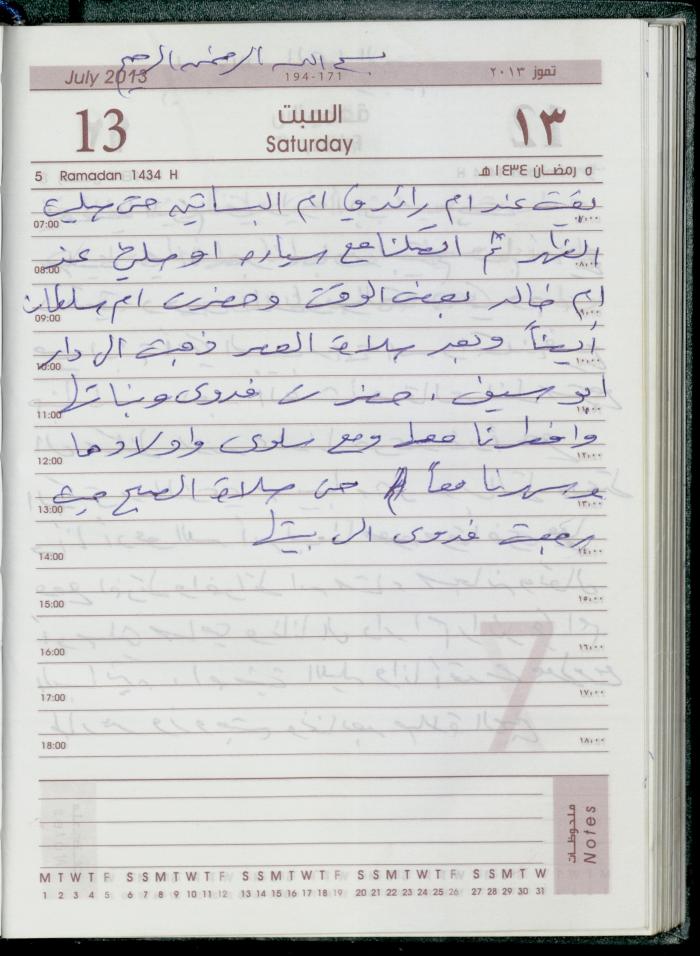 بسم الله الرحمن الرحيم
July 2013 194-171 تموز ٢٠١٣
13 السبت ١٣
Saturday
5 Ramadan 1434 H ٥ رمضان ١٤٣٤هـ
بقيت عند ام رائد في ام البساتين حتى صليت
07:00 ٠٧:٠٠
الظهر ثم اتصلنا مع سياره اوصلني عند
08:00 ٠٨:٠٠
ام خالد بعض الوقت وحضرت ام سلطان
09:00 ٠٩:٠٠
أيضاً وبعد صلاة العصر ذهبت الى دار
10:00 ١٠:٠٠
ابو سيف . حضرت فدوى وبناتها
11:00 ١١:٠٠
وافطرنا معا ومع سلوى واولادها
12:00 ١٢:٠٠
وسهرنا معاً حتى صلاة الصبح حيث
13:00 ١٣:٠٠
رجعت فدوى الى بيتها
14:00 ١٤:٠٠
15:00 ١٥:٠٠
16:00 ١٦:٠٠
17:00 ١٧:٠٠
18:00 ١٨:٠٠
ملحوظات
Notes
M T W T F S S M T W T F S S M T W T F S S M T W T F S S M T W
1 2 3 4 5 6 7 8 9 10 11 12 13 14 15 16 17 18 19 20 21 22 23 24 25 26 27 28 29 30 31